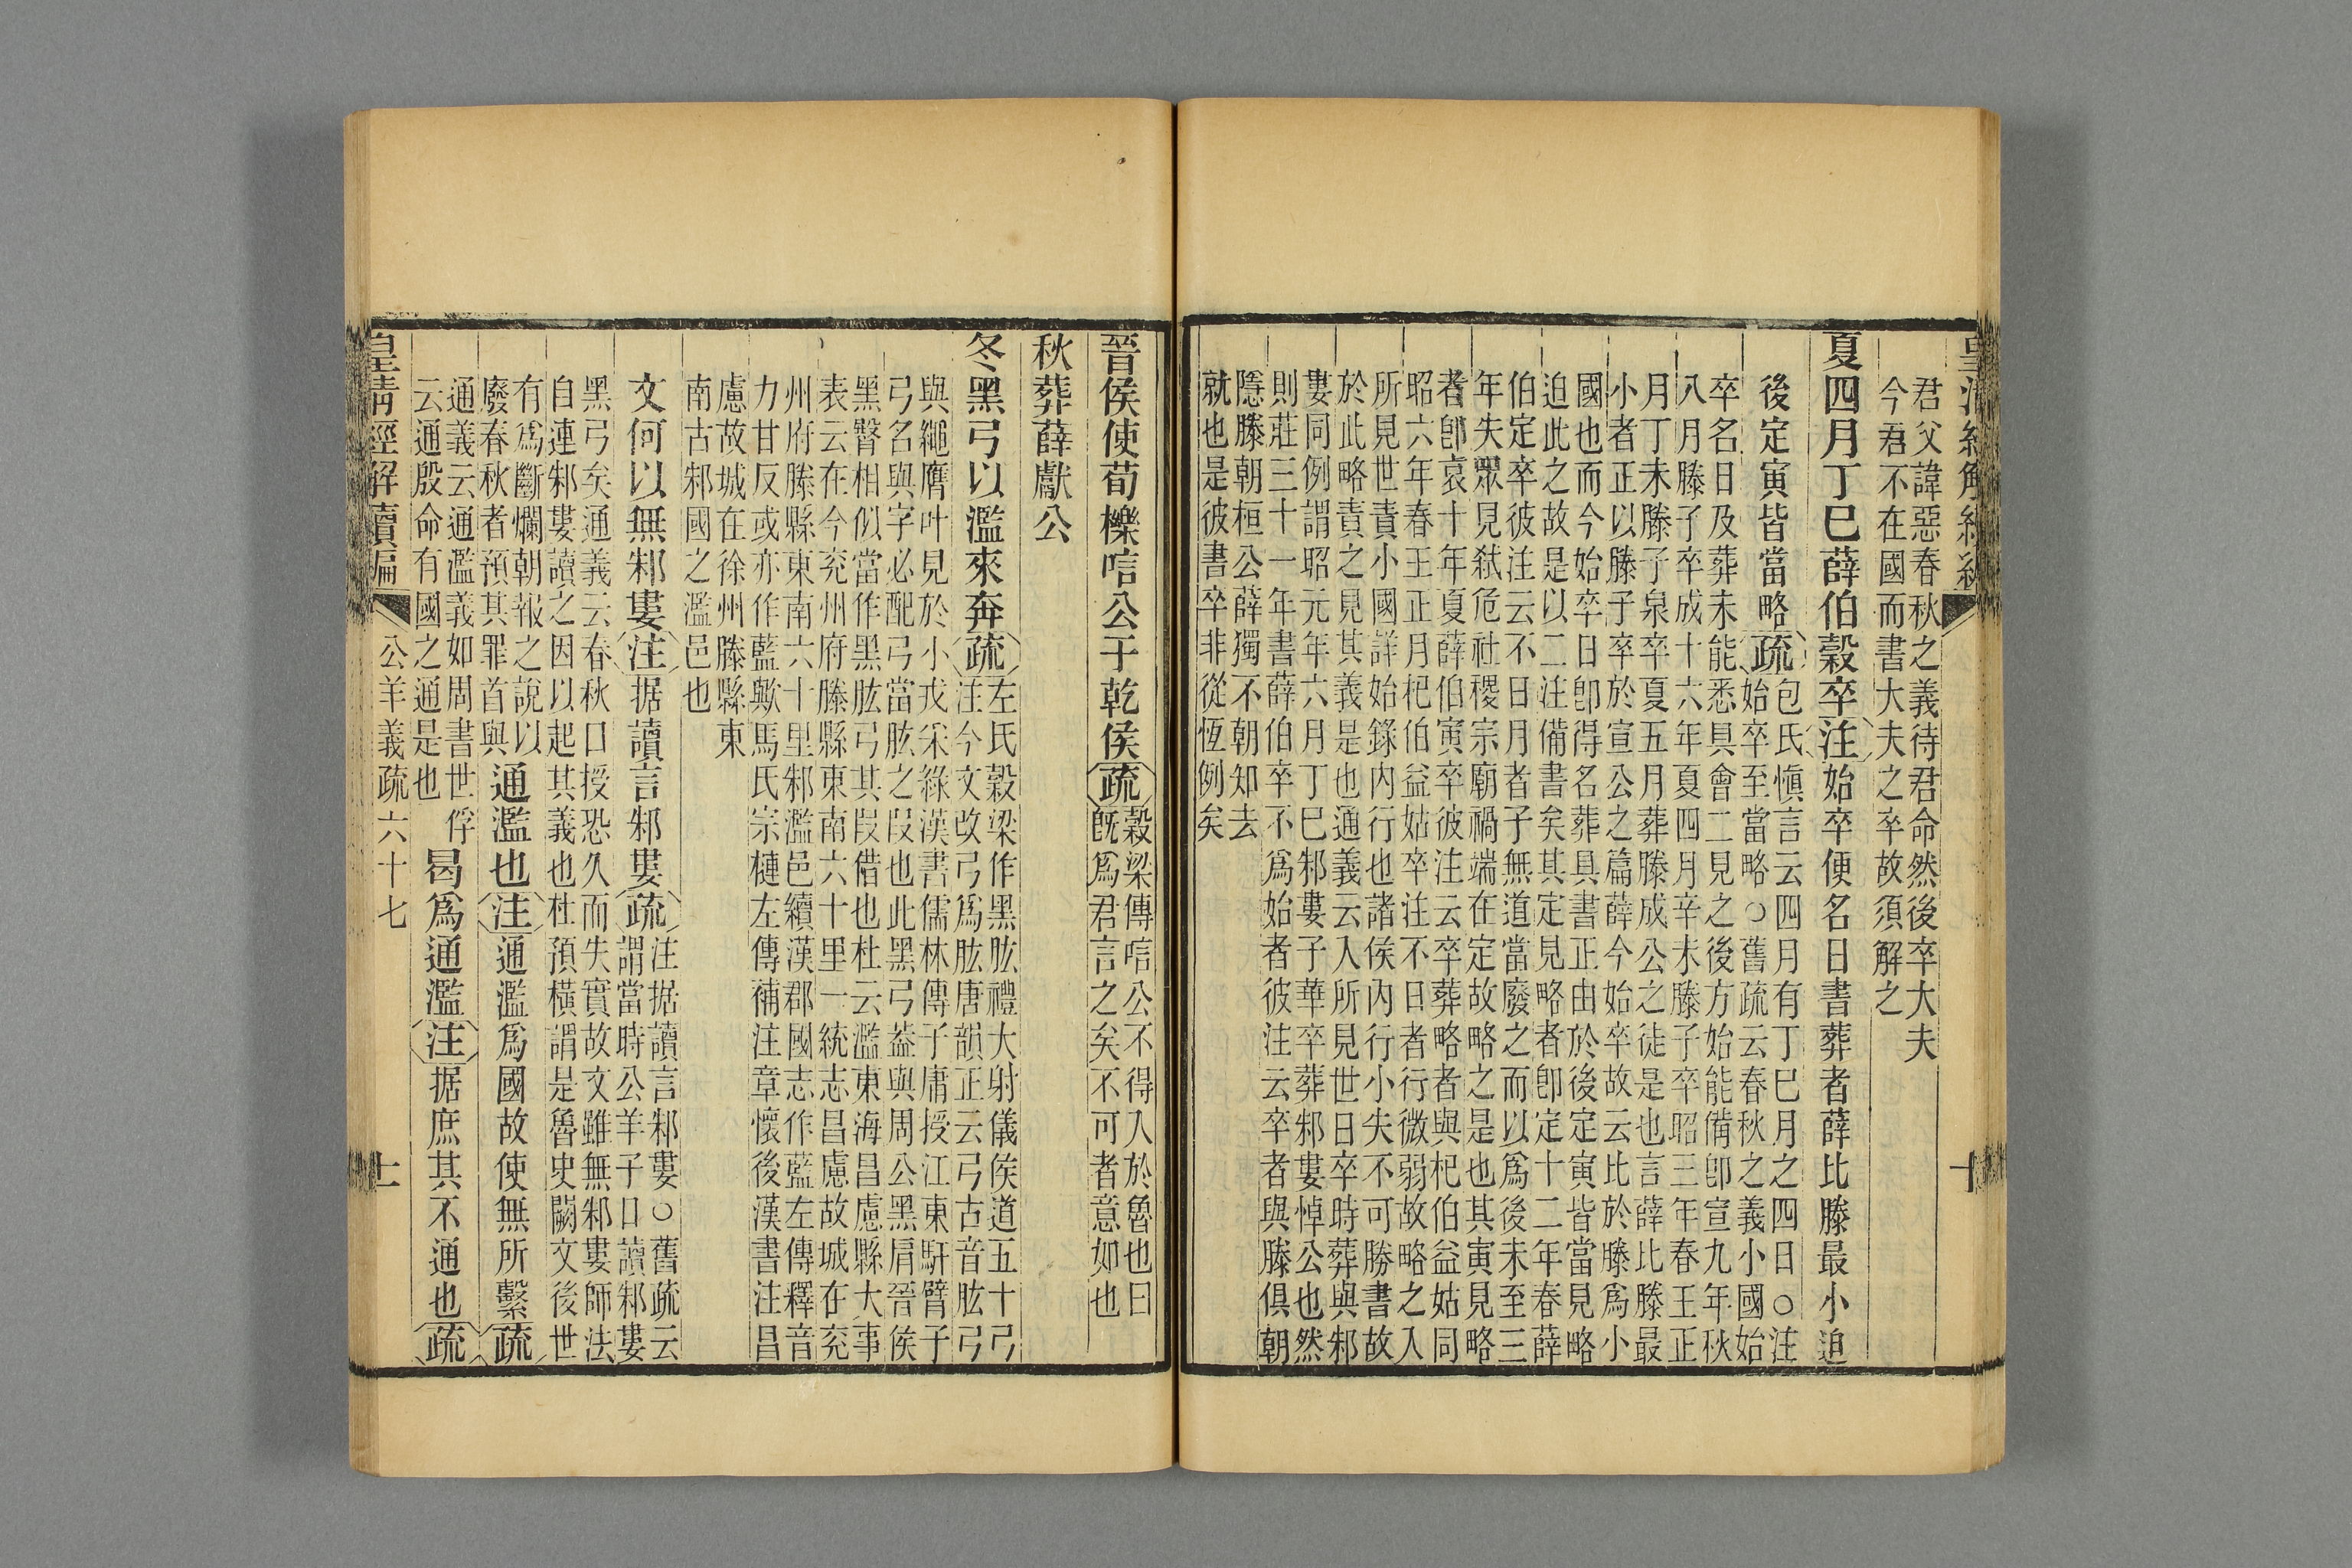 君父諱惡春秋之義待君命然後卒大夫
今君不在國而書大夫之卒故須解之
夏四月丁巳薛伯穀卒注始卒便名日書葬者薛比滕最小迫
後定寅皆當略疏
包氏愼言云四月有丁巳月之四日○注
始卒至當略○舊疏云春秋之義小國始
卒名日及葬未能悉具會二見之後方始能備卽宣九年秋
八月滕子卒成十六年夏四月辛未滕子卒昭三年春王正
月丁未滕子泉卒夏五月葬滕成公之徒是也言薛比滕最
小者正以滕子卒於宣公之篇薛今始卒故云比於滕爲小
國也而今始卒日卽得名葬具書正由於後定寅皆當見略
迫此之故是以二注備書矣其定見略者卽定十二年春薛
伯定卒彼注云不日月者子無道當廢之而以爲後未至三
年失眾見弒危社稷宗廟禍端在定故略之是也其寅見略
者卽哀十年夏薛伯寅卒彼注云卒葬略者與杞伯益姑同
昭六年春王正月杞伯益姑卒注不日者行微弱故略之入
所見世責小國詳始錄內行也諸侯內行小失不可勝書故
於此略責之見其義是也通義云入所見世日卒時葬與邾
婁同例謂昭元年六月丁巳邾婁子華卒葬邾婁悼公也然
則莊三十一年書薛伯卒不爲始者彼注云卒者與滕俱朝
隱滕朝桓公薛獨不朝知去
就也是彼書卒非從恆例矣
晉侯使荀櫟唁公于乾侯疏
穀梁傳唁公不得入於魯也曰
旣爲君言之矣不可者意如也
秋葬薛獻公
冬黑弓以濫來奔疏
左氏穀梁作黑肱禮大射儀侯道五十弓
注今文改弓爲肱唐韻正云弓古音肱弓
與繩膺叶見於小戎采綠漢書儒林傳子庸授江東馯臂子
弓名與字必配弓當肱之叚也此黑弓葢與周公黑肩晉侯
黑臀相似當作黑肱弓其叚借也杜云濫東海昌慮縣大事
表云在今兖州府滕縣東南六十里一統志昌慮故城在兖
州府滕縣東南六十里邾濫邑續漢郡國志作藍左傳釋音
力甘反或亦作藍歟馬氏宗槤左傳補注章懷後漢書注昌
慮故城在徐州滕縣東
南古邾國之濫邑也
文何以無邾婁注据讀言邾婁疏
注据讀言邾婁○舊疏云
謂當時公羊子口讀邾婁
黑弓矣通義云春秋口授恐久而失實故文雖無邾婁師法
自連邾婁讀之因以起其義也杜預橫謂是魯史闕文後世
有爲斷爛朝報之說以
廢春秋者預其罪首與
通濫也注通濫爲國故使無所繫疏
通義云通濫義如周書世俘
云通殷命有國之通是也
曷爲通濫注据庶其不通也疏
皇淸經解續編 公羊義疏六十七 十一